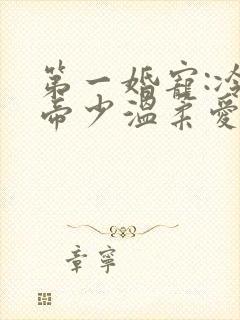 第一婚寵:冷
帝少溫柔愛
章寧